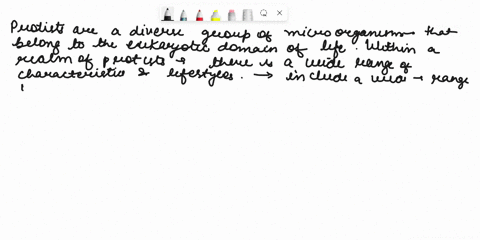 Protists are a diverse group of microorganism that
belong to the eukaryotic domain of life. Within a
realm of protists → there is a wide range of
characteristic & lifestyles. → include a wide range